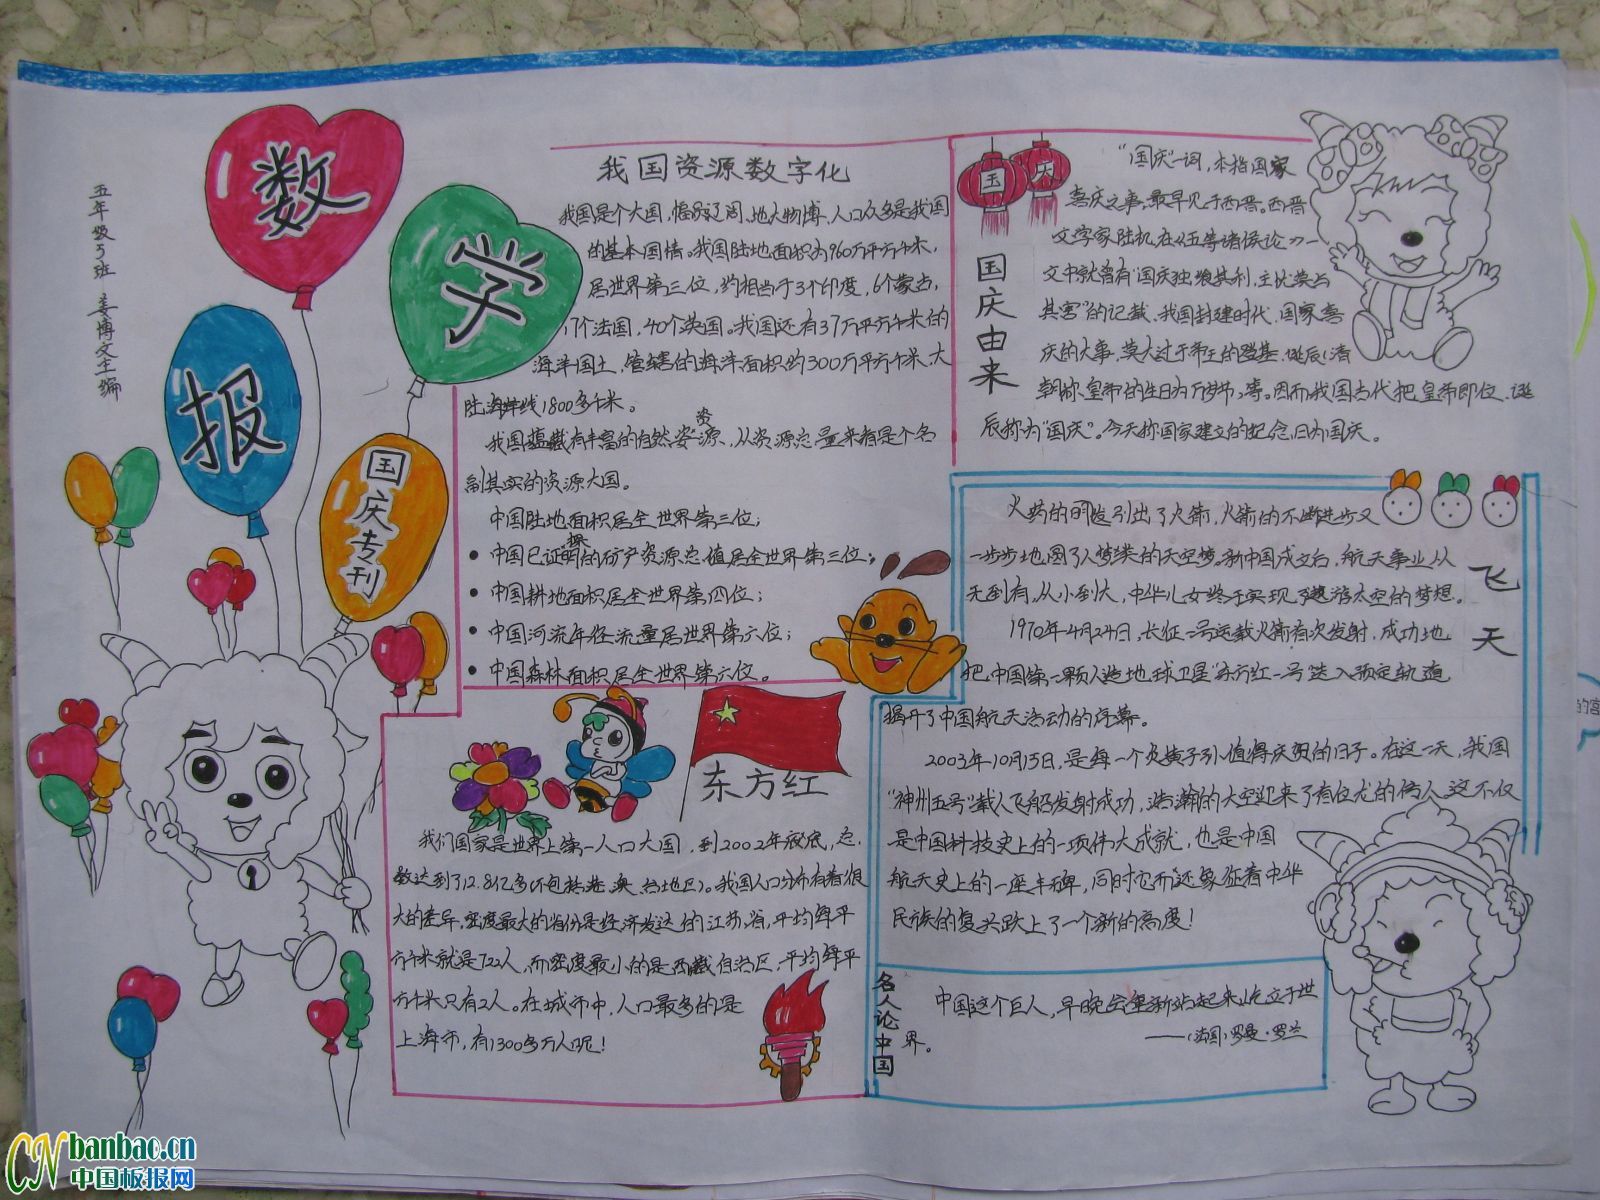 数
学
报
国庆专刊
五年级5班 姜博文主编
我国资源数字化
我国是个大国，幅员辽阔，地大物博，人口众多是我国
的基本国情。我国陆地面积为960万平方千米，
居世界第三位，约相当于3个印度，6个蒙古，
17个法国，40个英国。我国还有37万平方千米的
海洋国土，管辖的海洋面积约300万平方千米，大
陆海岸线1800多千米。
我国蕴藏有丰富的自然资源，从资源总量来看是个名
副其实的资源大国。
中国陆地面积居全世界第三位；
中国已证探明的矿产资源总值居全世界第三位；
中国耕地面积居全世界第四位；
中国河流年径流量居世界第六位；
中国森林面积居全世界第六位。
东方红
我们国家是世界上第一人口大国，到2002年底，总
数达到了12.8亿多（不包括港、澳、台地区）。我国人口分布有着很
大的差异，密度最大的省份是经济发达的江苏省，平均每平
方千米就是722人，而密度最小的是西藏自治区，平均每平
方千米只有2人。在城市中，人口最多的是
上海市，有1300多万人呢！
国庆
国庆由来
“国庆”一词，本指国家
喜庆之事，最早见于西晋。西晋
文学家陆机在《五等诸侯论》一
文中就曾有“国庆独飨其利，主忧莫与
其害”的记载、我国封建时代、国家喜
庆的大事，莫大过于帝王的登基、诞辰（清
朝称皇帝的生日为万岁节）等。因而我国古代把皇帝即位、诞
辰称为“国庆”。今天称国家建立的纪念日为国庆。
飞天
火药的研发引出了火箭，火箭的不断进步又
一步步地圆了人类的天空梦。新中国成立后，航天事业从
无到有，从小到大，中华儿女终于实现了遨游太空的梦想。
1970年4月24日，长征一号运载火箭首次发射，成功地
把中国第一颗人造地球卫星“东方红一号”送入预定轨道，
揭开了中国航天活动的序幕。
2003年10月15日，是每一个炎黄子孙值得庆贺的日子。在这一天，我国
“神州五号”载人飞船发射成功，浩瀚的太空迎来了首位龙的传人。这不仅
是中国科技史上的一项伟大成就，也是中国
航天史上的一座丰碑，同时它而还象征着中华
民族的复兴跃上了一个新的高度！
名人论中国
中国这个巨人，早晚会重新站起来屹立于世
界。
——（法国）罗曼·罗兰
的富
CN banbao.cn
中国板报网